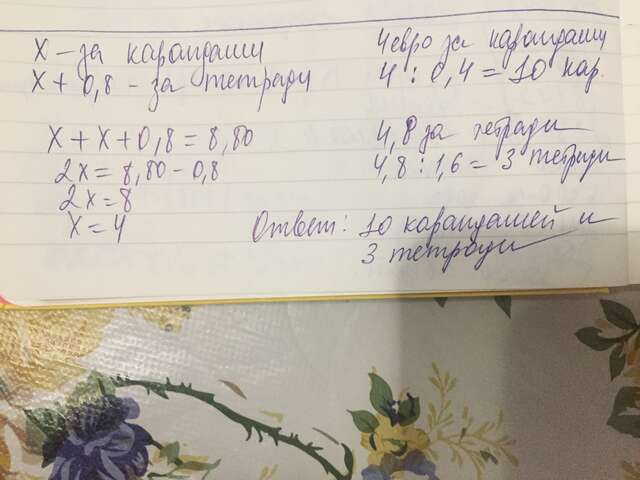 х - за карандаши
х + 0,8 - за тетради
х + х + 0,8 = 8,80
2х = 8,80 - 0,8
2х = 8
х = 4
4 евро за карандаши
4 : 0,4 = 10 кар.
4,8 за тетради
4,8 : 1,6 = 3 тетради
Ответ: 10 карандашей и
3 тетради